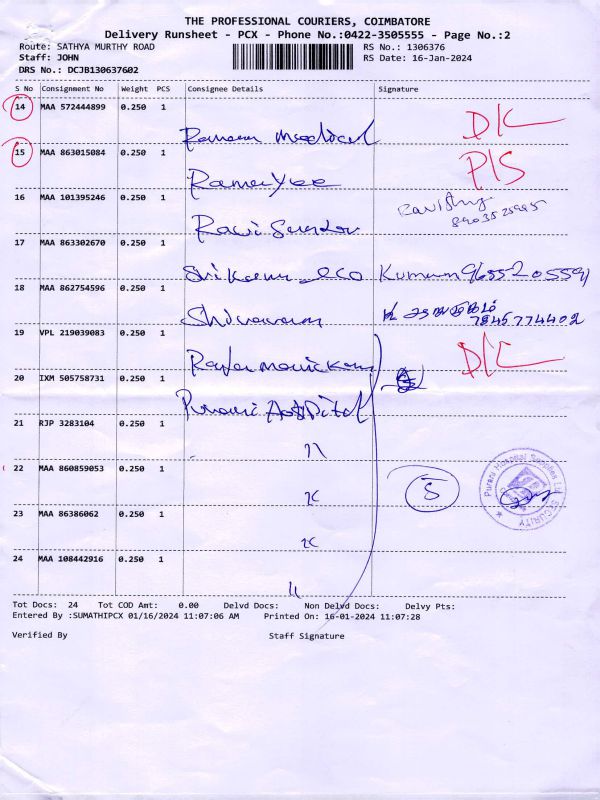 THE PROFESSIONAL COURIERS, COIMBATORE
Delivery Runsheet - PCX - Phone No.:0422-3505555 - Page No.:2
Route: SATHYA MURTHY ROAD RS No.: 1306376
Staff: JOHN RS Date: 16-Jan-2024
DRS No.: DCJB130637602
S No Consignment No Weight PCS Consignee Details Signature
14 MAA 572444899 0.250 1 Medical D/C
15 MAA 863015084 0.250 1 P/S
16 MAA 101395246 0.250 1 Ravi
17 MAA 863302670 0.250 1 Kumum 9655205591
18 MAA 862754596 0.250 1 7845774402
19 VPL 219039083 0.250 1 D/C
20 IXM 505758731 0.250 1 Hospital
21 RJP 3283104 0.250 1
22 MAA 860859053 0.250 1 5
23 MAA 86386062 0.250 1
24 MAA 108442916 0.250 1
Purani Hospital Supplies Ltd SECURITY
Tot Docs: 24 Tot COD Amt: 0.00 Delvd Docs: Non Delvd Docs: Delvy Pts:
Entered By :SUMATHIPCX 01/16/2024 11:07:06 AM Printed On: 16-01-2024 11:07:28
Verified By Staff Signature